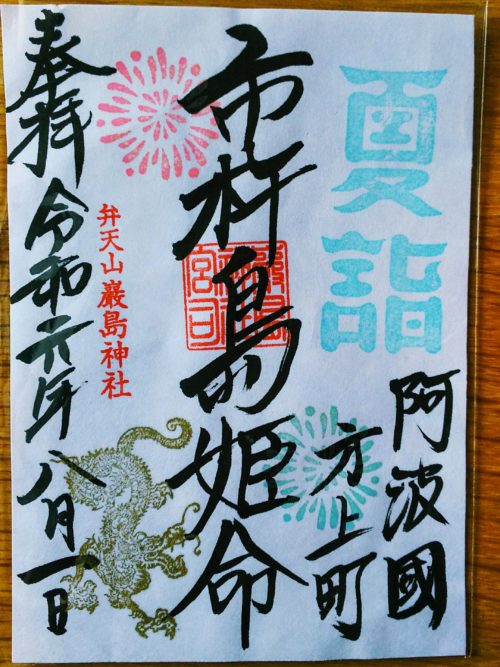 夏詣
阿波國
方上町
市杵島姫命
巖島神社宮司
弁天山巖島神社
奉拝
令和元年八月一日